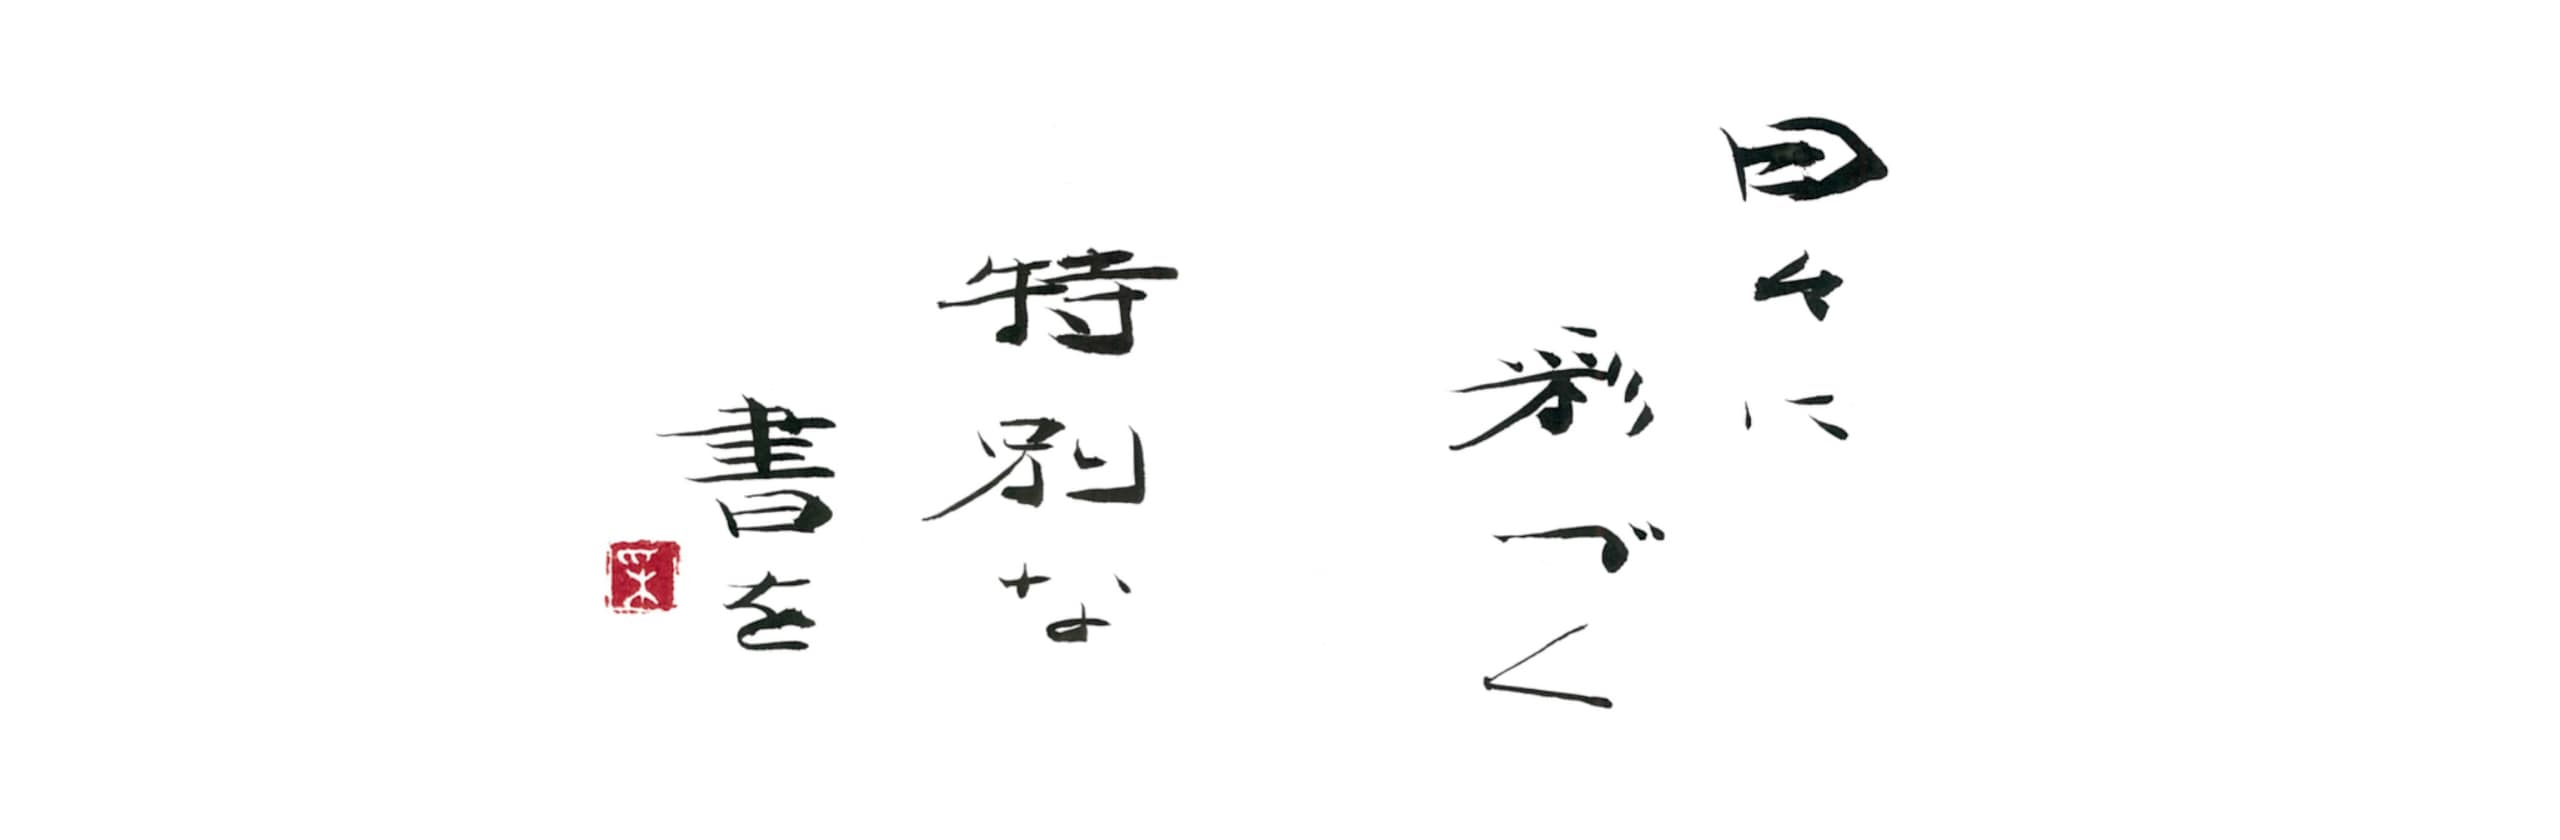 日々に
彩づく
特別な
書を
采